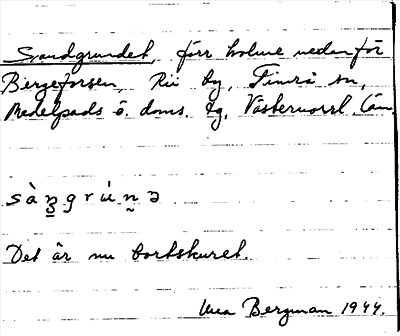 Sandgrundet, förr holme nedanför
Bergeforsen, Rii by, Timrå sn,
Medelpads ö. doms. tg, Västernorrl. län.
sàn̰grún̰ə
Det är nu bortskuret.
Bergman 1944.